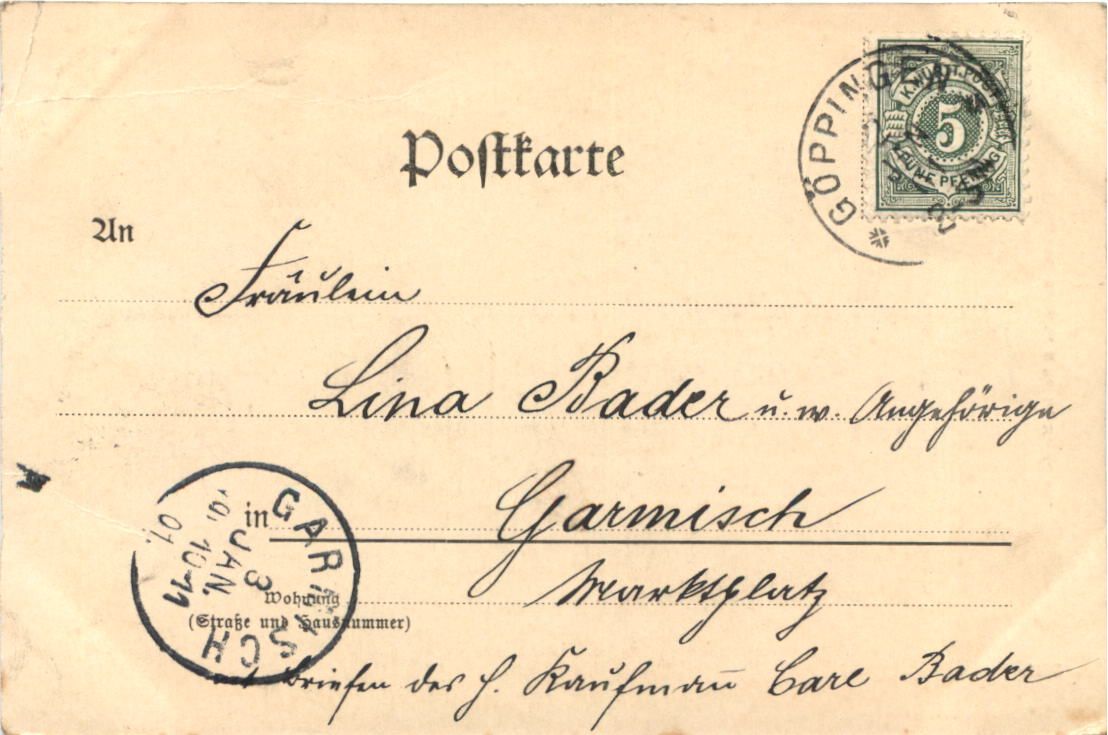 Postkarte
GÖPPINGEN
K. WÜRTT. POST
5
FÜNF PFENNIG
An
Fräulein
Lina Bader u. w. Angehörige
in Garmisch
Wohnung Marktplatz
(Straße und Hausnummer)
Briefen des H. Kaufmann Carl Bader
GARMISCH
3
JAN.
10-11
01.